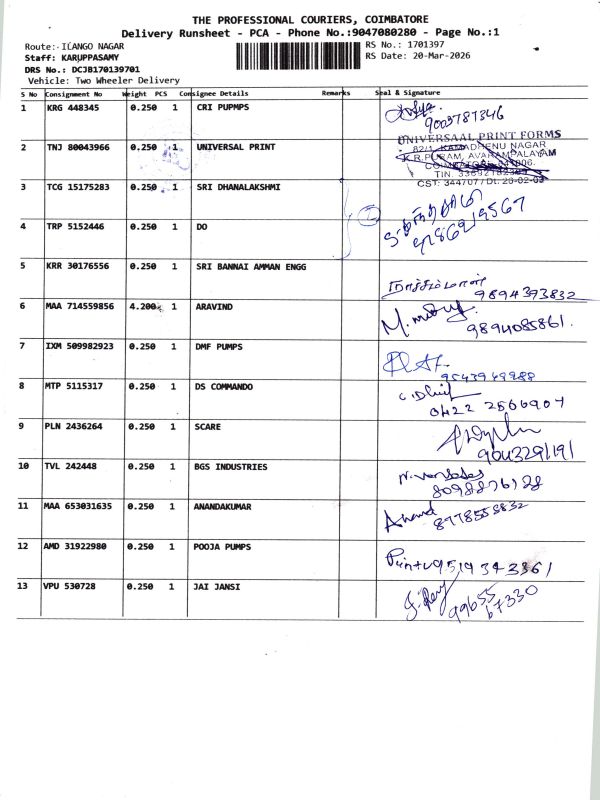 THE PROFESSIONAL COURIERS, COIMBATORE
Delivery Runsheet - PCA - Phone No.:9047080280 - Page No.:1
Route:- ILANGO NAGAR
RS No.: 1701397
Staff: KARUPPASAMY
RS Date: 20-Mar-2026
DRS No.: DCJB170139701
Vehicle: Two Wheeler Delivery
S No Consignment No Weight PCS Consignee Details Remarks Seal & Signature
1 KRG 448345 0.250 1 CRI PUPMPS
9003787346
2 TNJ 80043966 0.250 1 UNIVERSAL PRINT
UNIVERSAAL PRINT FORMS
82/1, KAMADHENU NAGAR
K.R.PURAM, AVARAMPALAYAM
COIMBATORE - 641006.
TIN:
CST: 344707/Dt. 26-02-03
3 TCG 15175283 0.250 1 SRI DHANALAKSHMI
4 TRP 5152446 0.250 1 DO
5 KRR 30176556 0.250 1 SRI BANNAI AMMAN ENGG
9894393832
6 MAA 714559856 4.200 1 ARAVIND
9894085861.
7 IXM 509982923 0.250 1 DMF PUMPS
9543949288
8 MTP 5115317 0.250 1 DS COMMANDO
0422 2566907
9 PLN 2436264 0.250 1 SCARE
9043291191
10 TVL 242448 0.250 1 BGS INDUSTRIES
11 MAA 653031635 0.250 1 ANANDAKUMAR
Anand
8778555832
12 AMD 31922980 0.250 1 POOJA PUMPS
9514343361
13 VPU 530728 0.250 1 JAI JANSI
99655
67330